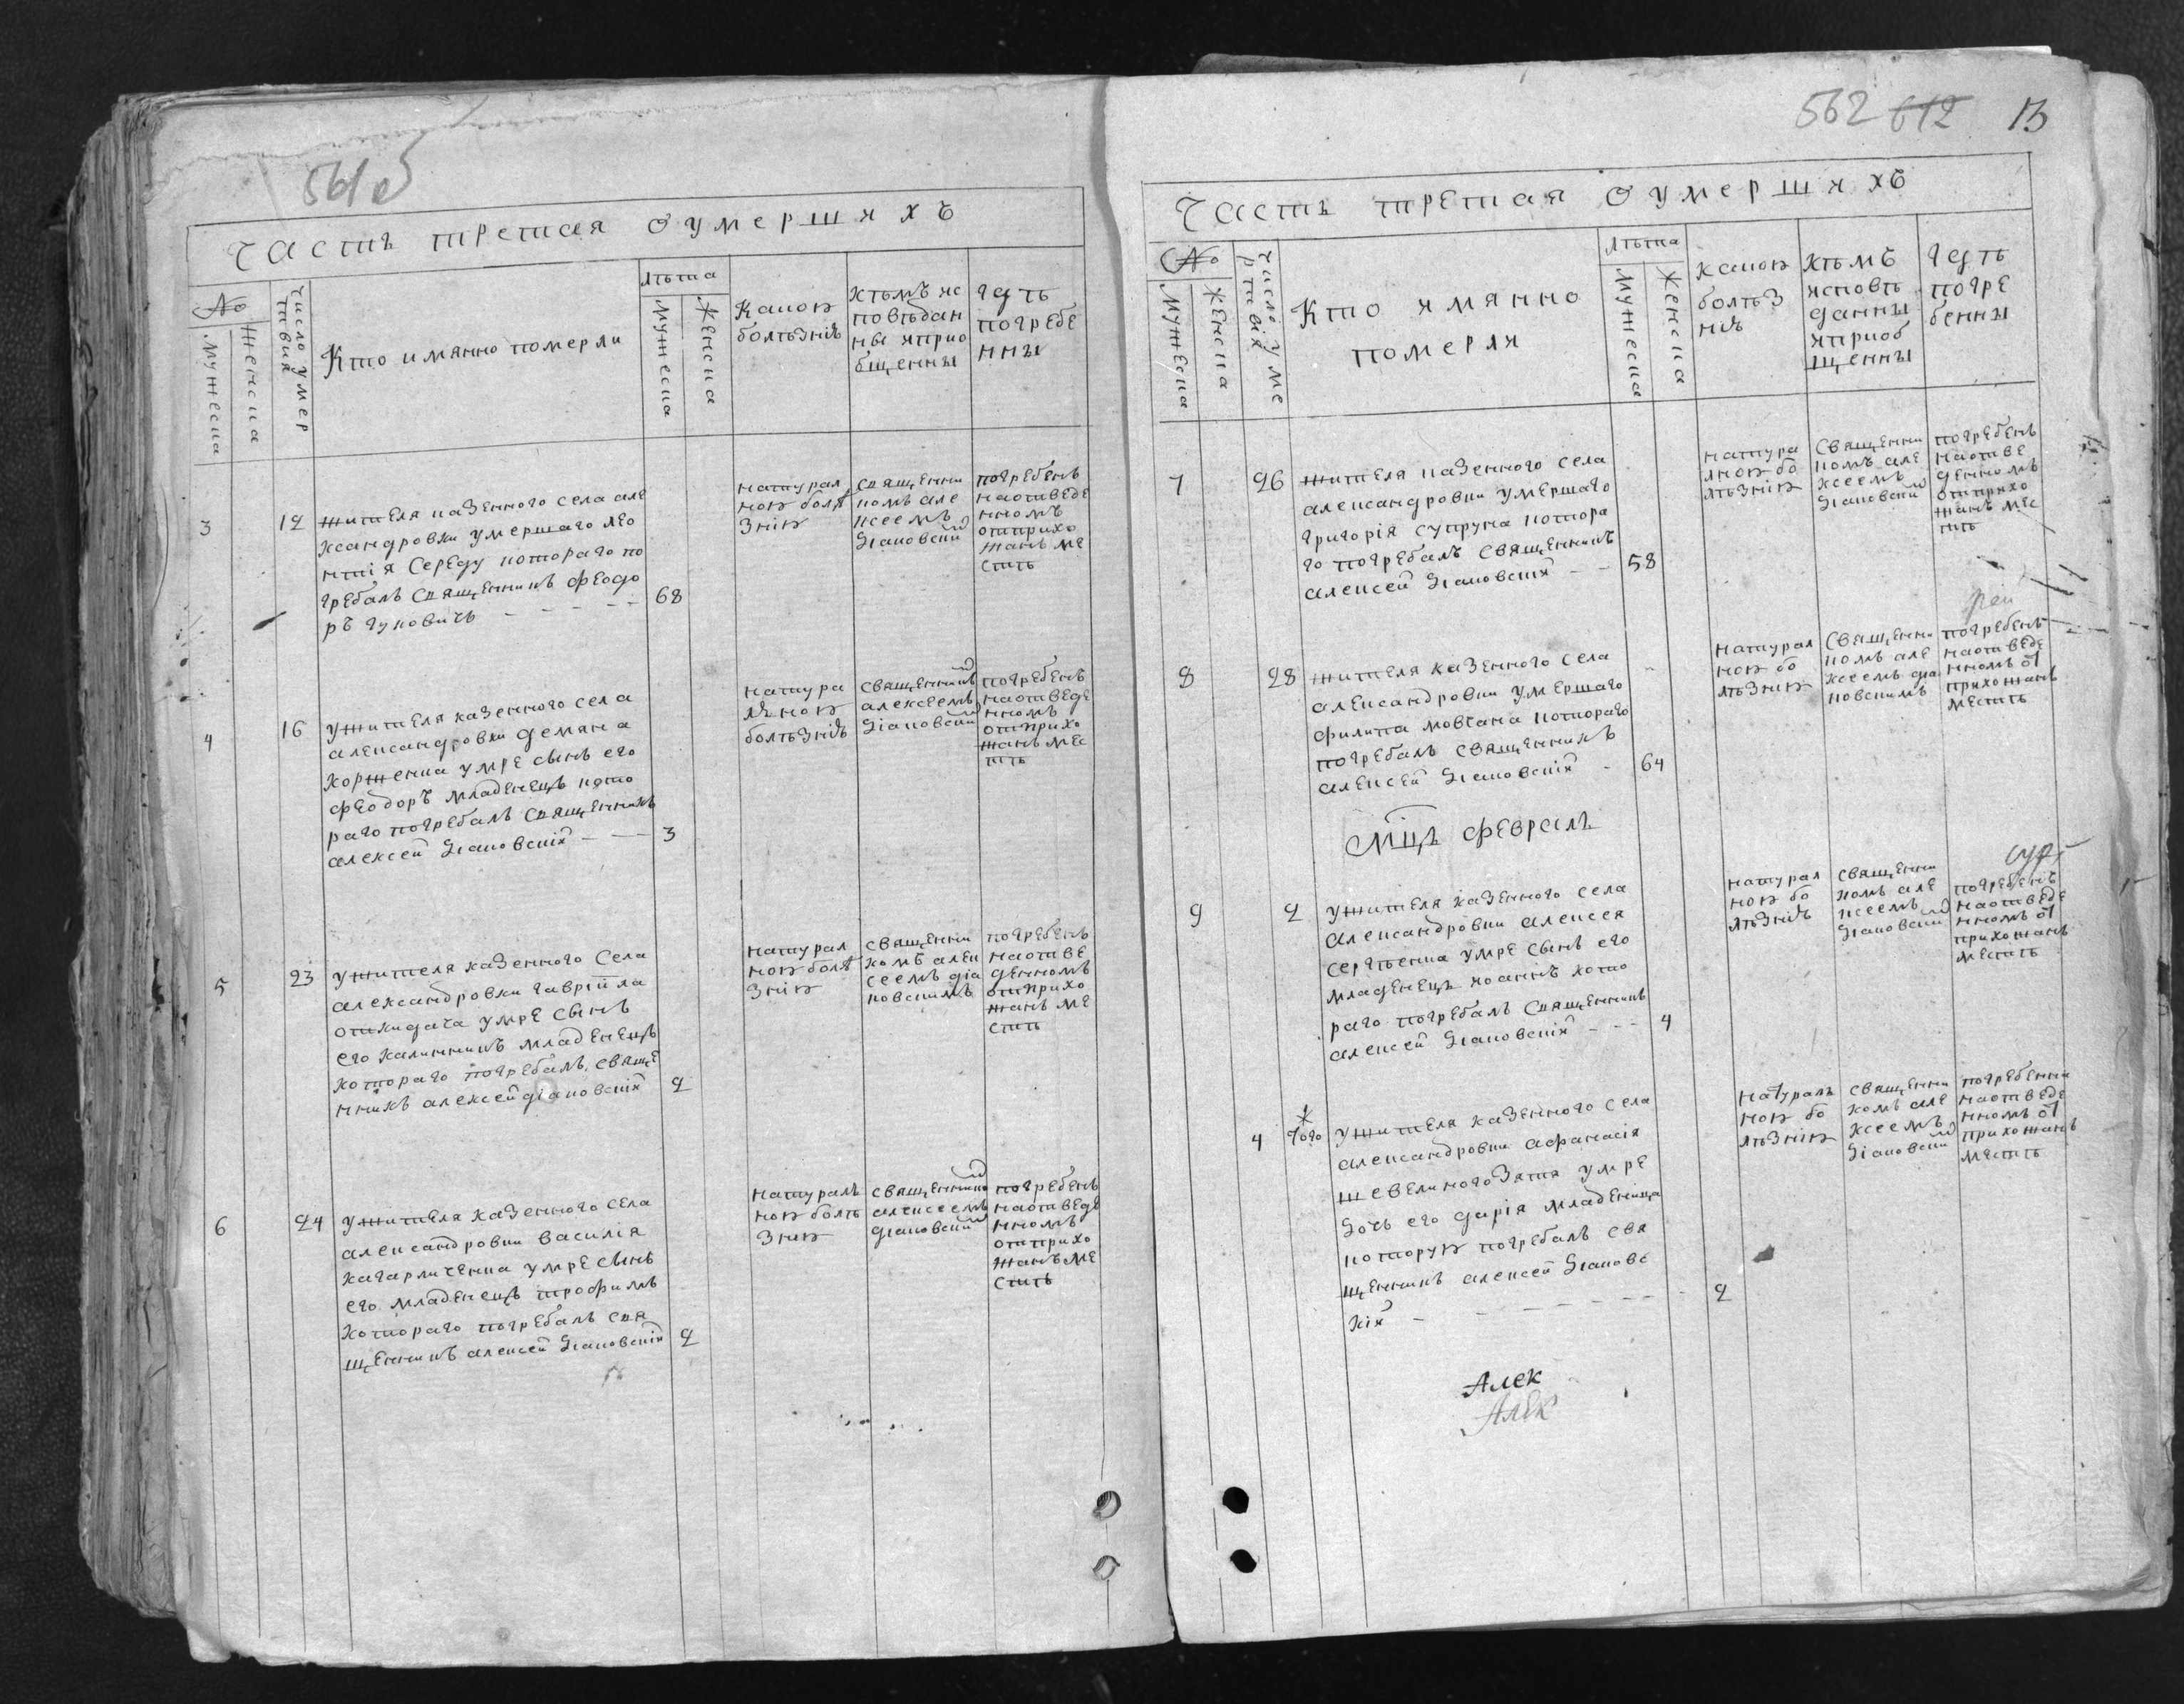 561 об
Часть третая о умершихъ
№
Мужеска
Женска
Число умер
твия
Кто имянно померли
лѣта
Мужеска
Женска
Какою
болѣзнію
Кѣмъ ис
повѣдан
ны и прио
бщенны
Гдѣ
погребе
нны
3
12
жителя казенного села але
ксандровки умершаго лео
нтія Середу котораго по
гребалъ священникъ феодо
ръ гуковичъ
68
натурал
ною болѣ
знію
священни
комъ але
ксеемъ
діаковский
погребенъ
на отведе
нномъ
от прихо
жанъ ме
стѣ
4
16
У жителя казенного села
александровки демяна
Корженка умре сынъ его
феодоръ младенецъ кото
раго погребалъ священникъ
алексей діаковскій
3
натура
лною
болѣзнію
священникъ
алексеемъ
діаковский
погребенъ
на отведе
нномъ
от прихо
жанъ мес
тѣ
5
23
У жителя казенного Села
александровки гавріила
откидача умре сынъ
его калинникъ младенецъ
котораго погребалъ свяще
нникъ алексей діаковскій
2
натурал
ною болѣ
знію
священни
комъ алек
сеемъ діа
ковскимъ
погребенъ
на отве
денномъ
от прихо
жанъ ме
стѣ
6
24
У жителя казенного села
александровки василія
кагарличенка умре сынъ
его младенецъ трофимъ
котораго погребалъ свя
щенникъ алексей діаковскій
2
натуралъ
ною болѣ
знію
священнико
алексеемъ
діаковский
погребенъ
на отведе
нномъ
от прихо
жанъ ме
стѣ
562 612 13
Часть третая о умершихъ
№
Мужеска
Женска
Число уме
ртвія
Кто имянно
померли
лѣта
Мужеска
Женска
Какою
болѣз
нію
Кѣмъ
исповѣ
данны
и приоб
щенны
Гдѣ
погре
бенны
7
26
жителя казенного села
александровки умершаго
григорія супруна котора
го погребалъ священникъ
алексей діаковскій
58
натура
лною бо
лѣзнію
священни
комъ але
ксеемъ
діаковский
погребенъ
на отве
денномъ
от прихо
жанъ мес
тѣ
8
28
жителя казенного села
александровки умершаго
филипа мовчана котораго
погребалъ священникъ
алексей діаковскій
64
натурал
ною бо
лѣзнію
священни
комъ але
ксеемъ діа
ковскимъ
погребенъ
на отведе
нномъ от
прихожанъ
местѣ
Мцъ февраль
9
2
У жителя казенного села
александровки алексея
сергѣенка умре сынъ его
младенецъ иоаннъ кото
раго погребалъ священникъ
алексей діаковскій
4
натурал
ною бо
лѣзнію
священни
комъ але
ксеемъ
діаковский
погребенъ
на отведе
нномъ от
прихожанъ
местѣ
4
того
У жителя казенного села
александровки афанасія
шевеликогозятя умре
дочь его дарія младеница
которую погребалъ свя
щенникъ алексей діаковс
кій
2
натуралъ
ною бо
лѣзнію
священни
комъ але
ксеемъ
діаковский
погребенна
на отведе
нномъ от
прихожанъ
местѣ
Алек
Алек